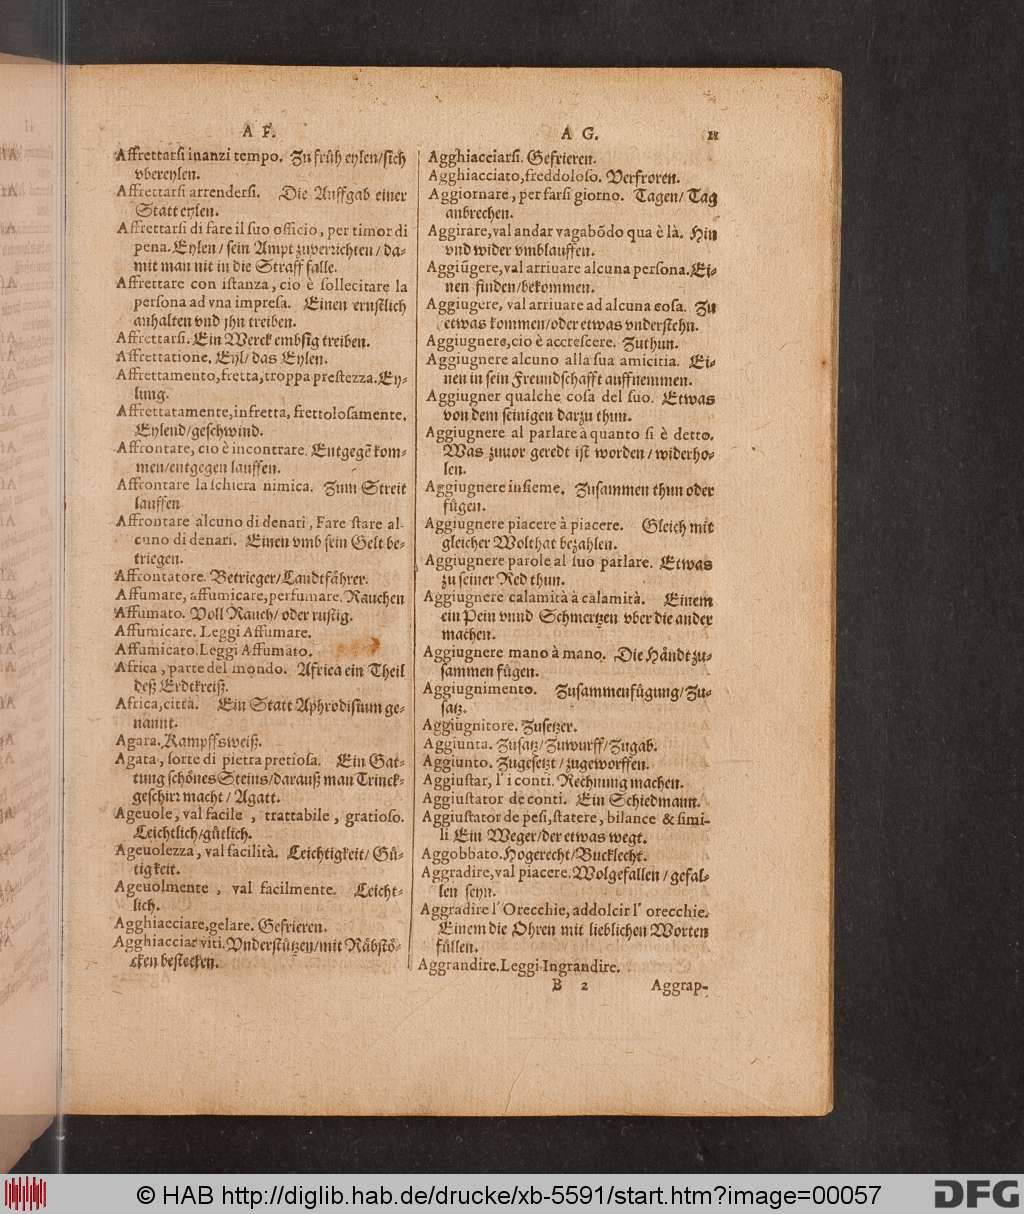 A F.
Affrettarsi inanzi tempo. Zu früh eylen/sich
vbereylen.
Affrettarsi attendersi. Die Auffgab einer
Statt eylen.
Affrettarsi di fare il suo officio, per timor di
pena. Eylen/ sein Ampt zuverrichten/ da-
mit man nit in die Straff falle.
Affrettare con istanza, cio è sollecitare la
persona ad vna impresa. Einen ernstlich
anhalten vnd jhn treiben.
Affrettarsi. Ein Werck embsig treiben.
Affrettatione, Eyl/ das Eylen.
Affrettamento, fretta, troppa prestezza. Ey-
lung.
Affrettatamente, infretta, frettolosamente.
Eylend/geschwind.
Affrontare, cio è incontrare. Entgegẽ kom-
men/entgegen lauffen.
Affrontare la schiera nimica. Zum Streit
lauffen
Affrontare alcuno di denari, Fare stare al-
cuno di denari. Einen vmb sein Gelt be-
triegen.
Affrontatore. Betrieger/Landtfährer.
Affumare, affumicare, perfumare. Rauchen
Affumato. Voll Rauch/ oder rustig.
Affumicare. Leggi Affumare.
Affumicato. Leggi Affumato.
Africa, parte del mondo. Africa ein Theil
deß Erdtkreiß.
Africa, città. Ein Statt Aphrodisium ge-
nannt.
Agara. Kampffsweiß.
Agata, sorte di pietra pretiosa. Ein Gat-
tung schönes Steins/darauß man Trinck-
geschirr macht/ Agatt.
Ageuole, val facile, trattabile, gratioso.
Leichtlich/gütlich.
Ageuolezza, val facilità. Leichtigkeit/ Gü-
tigkeit.
Ageuolmente, val facilmente. Leicht-
lich.
Agghiacciare, gelare. Gefrieren.
Agghiacciar viti. Vnderstützen/mit Räbstö-
cken bestecken.
A G. 11
Agghiacciarsi. Gefrieren.
Agghiacciato, freddoloso. Verfroren.
Aggiornare, per farsi giorno. Tagen/ Tag
anbrechen.
Aggirare, val andar vagabõdo qua è là. Hin
vnd wider vmblauffen.
Aggiũgere, val arriuare alcuna persona. Ei-
nen finden/bekommen.
Aggiugere, val arriuare ad alcuna cosa. Zu
etwas kommen/oder etwas vnderstehn.
Aggiugnere, cio è accrescere. Zuthun.
Aggiugnere alcuno alla sua amicitia. Ei-
nen in sein Freundschafft auffnemmen.
Aggiugner qualche cosa del suo. Etwas
von dem seinigen darzu thun.
Aggiugnere al parlare à quanto si è detto.
Was zuuor geredt ist worden/ widerho-
len.
Aggiugnere insieme. Zusammen thun oder
fügen.
Aggiugnere piacere à piacere. Gleich mit
gleicher Wolthat bezahlen.
Aggiugnere parole al suo parlare. Etwas
zu seiner Red thun.
Aggiugnere calamità à calamità. Einem
ein Pein vnnd Schmertzen vber die ander
machen.
Aggiugnere mano à mano. Die Händt zu-
sammen fügen.
Aggiugnimento. Zusammenfügung/Zu-
satz.
Aggiugnitore. Zusetzer.
Aggiunta. Zusatz/Zuwurff/Zugab.
Aggiunto. Zugesetzt/zugeworffen.
Aggiustar, l' i conti. Rechnung machen.
Aggiustator de conti. Ein Schiedmann.
Aggiustator de pesi, statere, bilance & simi-
li Ein Weger/der etwas wegt.
Aggobbato. Hogerecht/Bucklecht.
Aggradire, val piacere. Wolgefallen/ gefal-
len seyn.
Aggradire l' Orecchie, addolcir l' orecchie.
Einem die Ohren mit lieblichen Worten
füllen.
Aggrandire. Leggi Ingrandire.
B 2 Aggrap-
© HAB http://diglib.hab.de/drucke/xb-5591/start.htm?image=00057
DFG